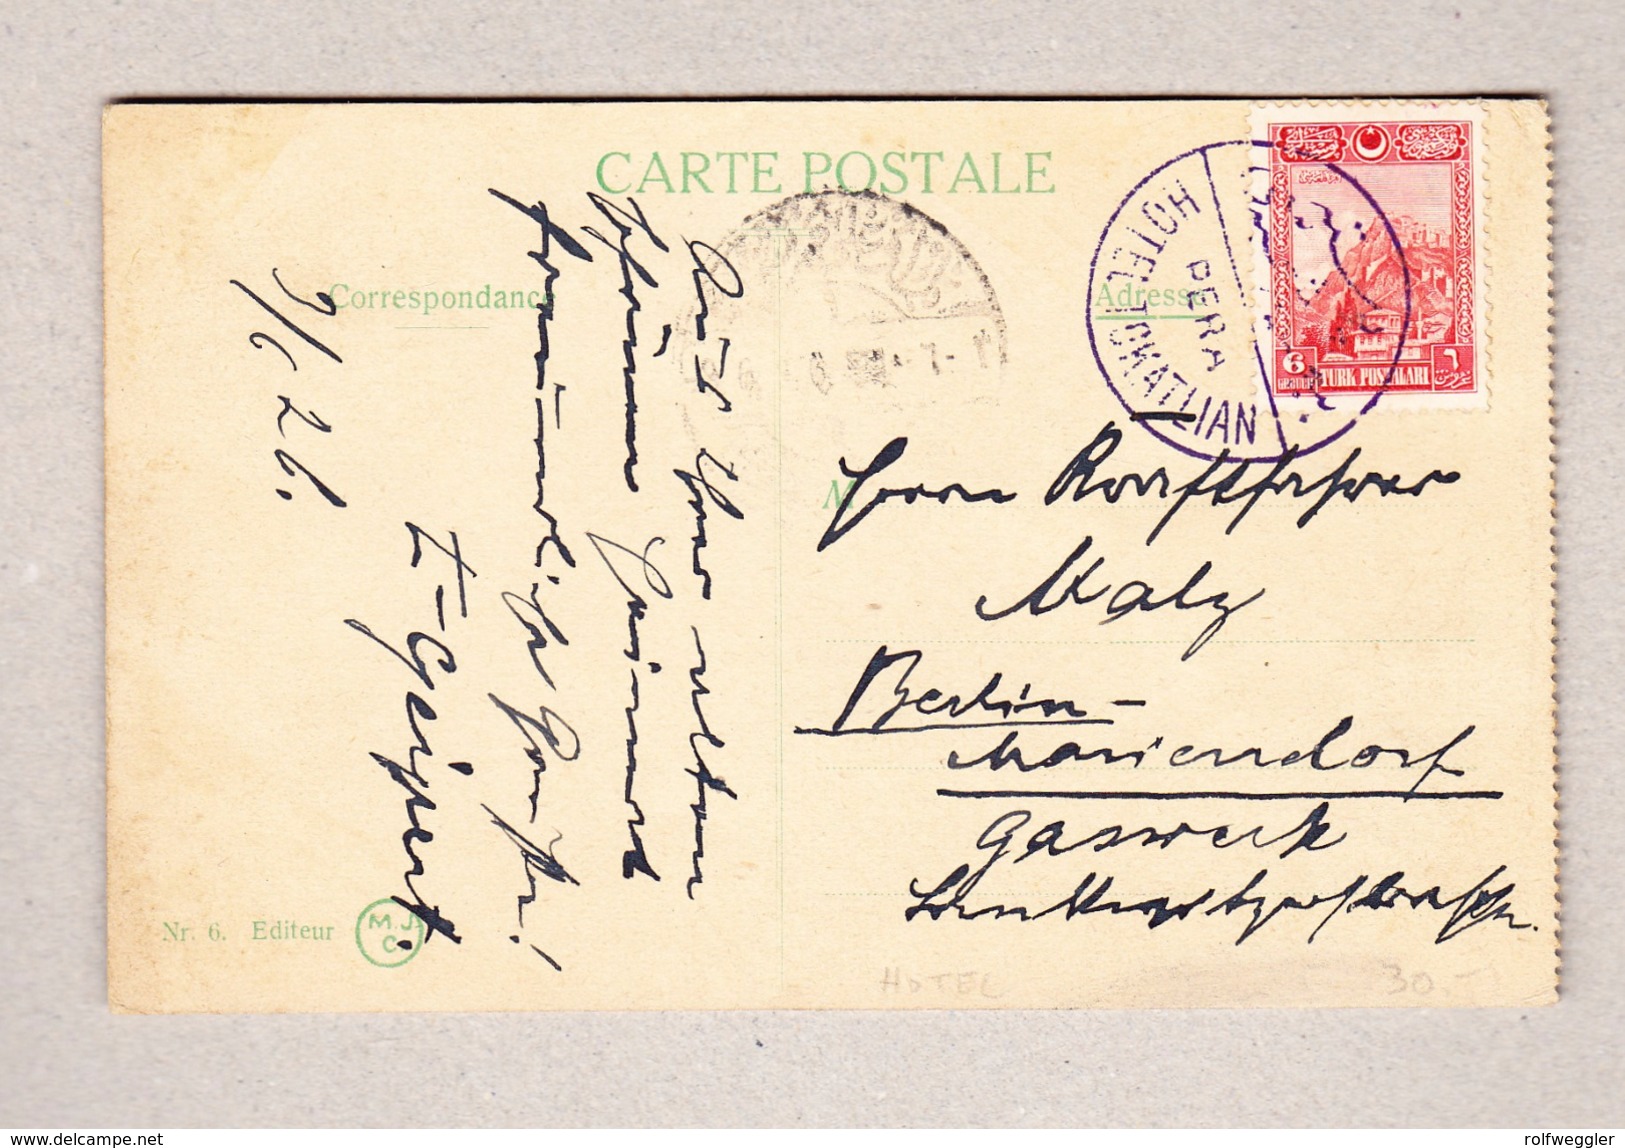 CARTE POSTALE
Correspondance
Adresse
HOTEL TOKATLIAN
PERA
6
GRUCH
TURK POSTALARI
٦
غروش
9/6 26.
Aus Ihrer alten
schönen Heimat
freundliche Grüße!
E. Geipert.
M
Herrn Kraftfahrer
Malz
Berlin-
Mariendorf
Gaswerk
Nr. 6. Editeur
M.J.C.
HOTEL
30.-
www.delcampe.net
rolfweggler